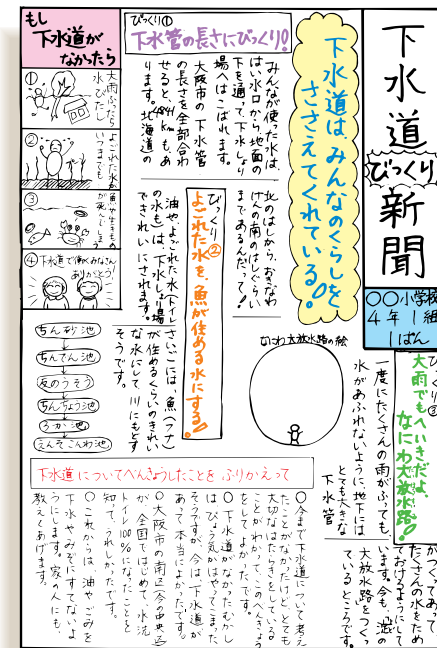 下水道
びっくり
新聞
〇〇小学校
4年1組
1ぱん
下水道は、みんなのくらしを
ささえてくれている!!
びっくり①
下水管の長さにびっくり!
みんなが使った水は、
はい水口から、地面の
下を通って、下水しょり
場へはこばれます。
大阪市の下水管
の長さを全部合わ
せると、4841kmもあ
ります。北海道の
北のはしから、おきなわ
けんの南のはしぐらい
まであるんだって!
びっくり②
よごれた水を、魚が住める水にする!!
油や、よごれた水(トイレ
の水も)は、下水しょり場
できれいにされます。
さいごには、魚(フナ)
が住めるくらいのきれい
な水にして、川にもどす
そうです。
ちん砂池
ちんでん池
反のうそう
ちんちょう池
ろか池
えんそこんわ池
びっくり③
大雨でもへいきだよ
なにわ大放水路!!
なにわ大放水路の絵
一度にたくさんの雨がふっても、
水があふれないように、地下には、
とても大きな
下水管
がつくってあって
たくさんの水をため
ておけるようにして
います。今も、“淀の
大放水路”をつくっ
ているところです。
もし
下水道が
なかったら
①
大雨ふったら
水びたし
②
よごれた水が
いつまでも
③
魚や生きもの
が死んでしまう
④下水道で働くみなさん
ありがとう!
下水道についてべんきょうしたことをふりかえって
〇今まで下水道について考え
たことがなかったけど、とても
大切なはたらきをしている
ことがわかって、このべんきょう
をしてよかったです。
〇下水道がなかったむかし
はびょう気がはやってこまった
そうですが、今は、下水道が
あって本当によかったです。
〇大阪市の南区(今の中央区)
が、全国ではじめて、水洗
トイレ100%になったことを
知って、うれしかったです。
〇これからは、油やごみを
下水やみぞにすてないよ
うにします。家の人にも、
教えてあげます。